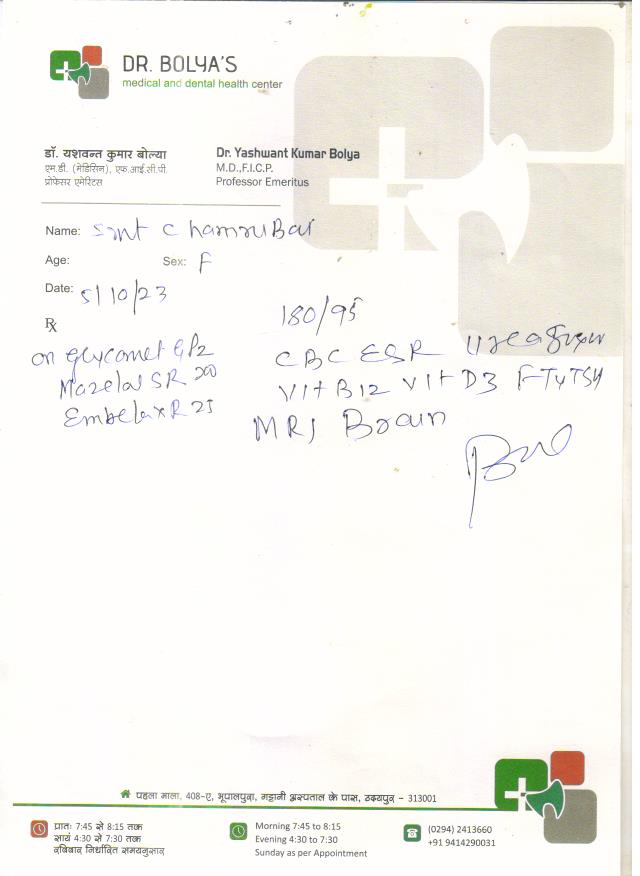 DR. BOLYA'S
medical and dental health center
डॉ. यशवन्त कुमार बोल्या
एम.डी. (मेडिसिन), एफ.आई.सी.पी.
प्रोफेसर एमेरिटस
Dr. Yashwant Kumar Bolya
M.D.,F.I.C.P.
Professor Emeritus
Name: Smt
Age:
Sex: F
Date: 5/10/23
℞
180/95
on Glycomet GP2
SR 200
R 25
CBC ESR Urea
Vit B12 Vit D3 FT4 TSH
MRI Brain
पहला माला, 408-ए, भूपालपुरा, गट्टानी अस्पताल के पास, उदयपुर - 313001
प्रातः 7:45 से 8:15 तक
सायं 4:30 से 7:30 तक
रविवार निर्धारित समयनुसार
Morning 7:45 to 8:15
Evening 4:30 to 7:30
Sunday as per Appointment
(0294) 2413660
+91 9414290031